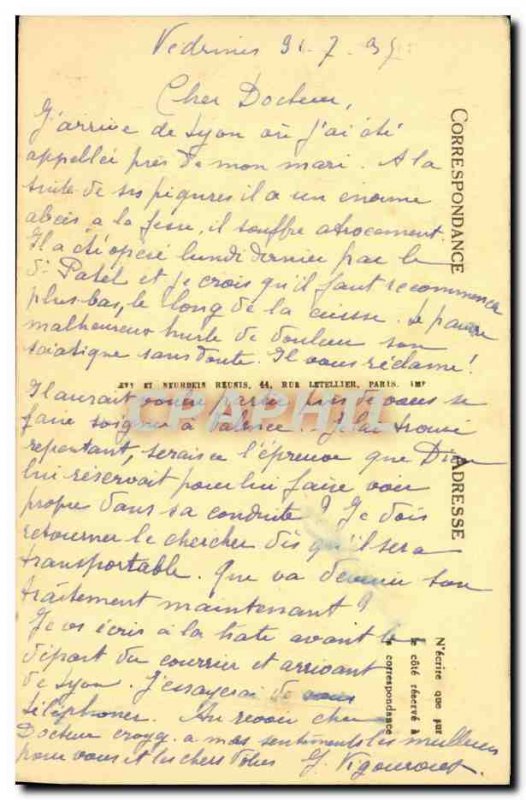 Vedrines 31-7.35
Cher Docteur,
J'arrive de Lyon où j'ai été
appellée près de mon mari. A la
suite de ses piqures il a un enorme
abcès a la fesse, il souffre atrocement
Il a été opéré lundi dernier par le
Dr Patel et je crois qu'il faut recommencer
plus bas, le long de la cuisse. Le pauvre
malheureux hurle de douleur son
sciatique sans doute. Il vous réclame!
LEVY ET NEURDEIN REUNIS, 44, RUE LETELLIER, PARIS. IMP
Il aurait voulu près de vous se
faire soigner à Valence. Je l'ai trouvé
repentant, serais ce l'épreuve que Dieu
lui réservait pour lui faire voir
propre dans sa conduite? Je dois
retourner le chercher dès qu'il sera
transportable. Que va devenir son
traitement maintenant?
Je vs écris à la hate avant le
départ du courrier et arrivant
de Lyon. J'essayerai de vous
téléphoner. Au revoir cher
Docteur croyez a mes sentiments les meilleurs
pour vous et les chers votres G. Vigouroux.
CORRESPONDANCE
ADRESSE
N'écrire que sur
le côté réservé à
la correspondance
CPAPHIL